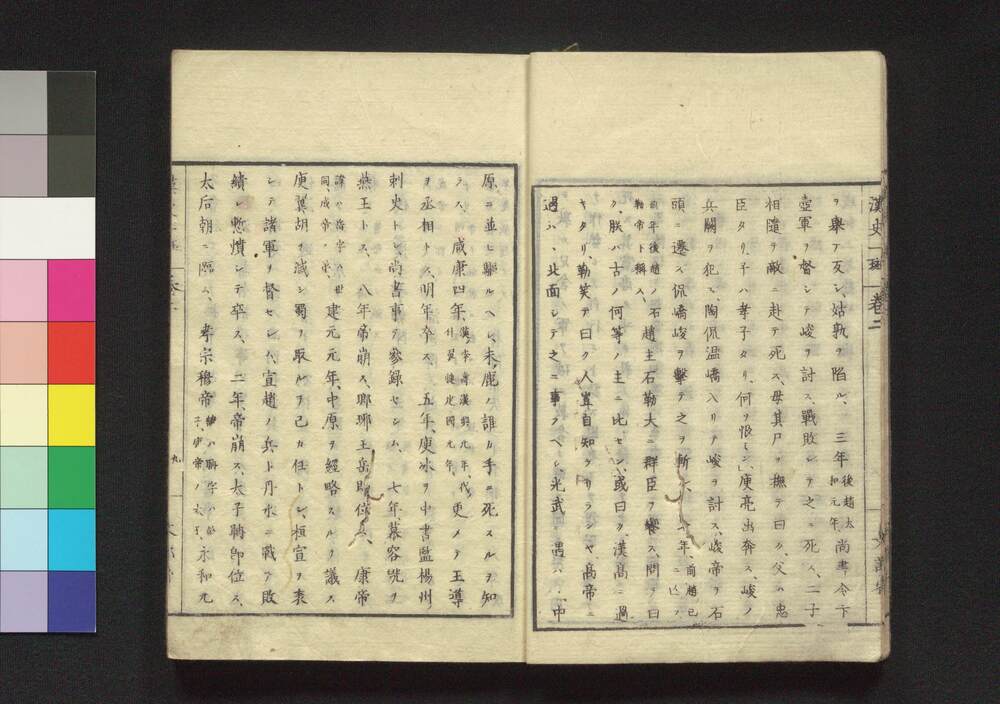 漢史一斑 卷二
ヲ擧テ反シ、姑孰ヲ陷ル、三年 後趙太和元年 尚書令卞
壺軍ヲ督シテ峻ヲ討ス、戰敗レテ之ニ死ス、二子
相隨ヲ敵ニ赴テ死ス、母其尸ヲ撫テ曰ク、父ハ忠
臣タリ、子ハ孝子タリ、何ヲ恨ミン、庾亮出奔ス、峻ノ
兵闕ヲ犯ス、陶侃溫嶠入リテ峻ヲ討ス、峻帝ヲ石
頭ニ遷ス侃嶠峻ヲ擊テ之ヲ斬ル、年、前趙已ニ亡フ
前年後趙ノ石勒帝ト稱ス、趙主石勒大ニ群臣ヲ饗ス、問テ曰
ク、朕ハ古ノ何等ノ主ニ比セン、或曰ク、漢高ニ過
キタリ勒笑テ曰ク人豈自知ラサランヤ高帝ニ
遇ハヽ、北面シテ之ニ事フヘシ、光武ニ遇ハヽ、中
原ニ並ヒ驅ルヘシ、未鹿ノ誰カ手ニ死スルヲ知
ラス、咸康四年、更メテ王導
ヲ丞相トス、明年卒ス、五年、庾冰ヲ中書監楊州
刺史トシ、尚書事ヲ參錄セシム、七年慕容皝ヲ
燕王トス、八年帝崩ス、瑯琊王岳卽位ス、康帝
諱ハ岳字ハ世同、成帝ノ弟、建元元年、中原ヲ經略スルヲ議ス
庾翼胡ヲ滅シ蜀ヲ取ルヲ己カ任トシ、桓宣ヲ表
シテ諸軍ヲ督セシム、宣趙ノ兵ト丹水ニ戰テ敗
績シ慙憤シテ卒ス、二年、帝崩ス、太子聃卽位ス、
太后朝ニ臨ム、孝宗穆帝 諱ハ聃字ハ彭子、康帝ノ太子、永和元
九